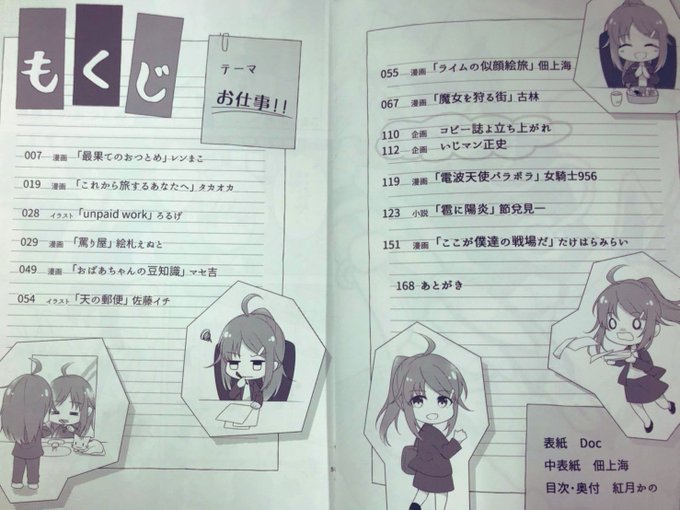 もくじ
テーマ
お仕事!!
007 漫画 「最果てのおつとめ」レンまこ
019 漫画 「これから旅するあなたへ」タカオカ
028 イラスト 「unpaid work」ろるげ
029 漫画 「罵り屋」絵札えぬと
049 漫画 「おばあちゃんの豆知識」マセ吉
054 イラスト 「天の郵便」佐藤イチ
055 漫画 「ライムの似顔絵旅」佃上海
067 漫画 「魔女を狩る街」古林
110 企画 コピー誌よ立ち上がれ
112 企画 いじマン正史
119 漫画 「電波天使パラボラ」女騎士956
123 小説 「雹に陽炎」節兌見一
151 漫画 「ここが僕達の戦場だ」たけはらみらい
168 あとがき
表紙 Doc
中表紙 佃上海
目次・奥付 紅月かの